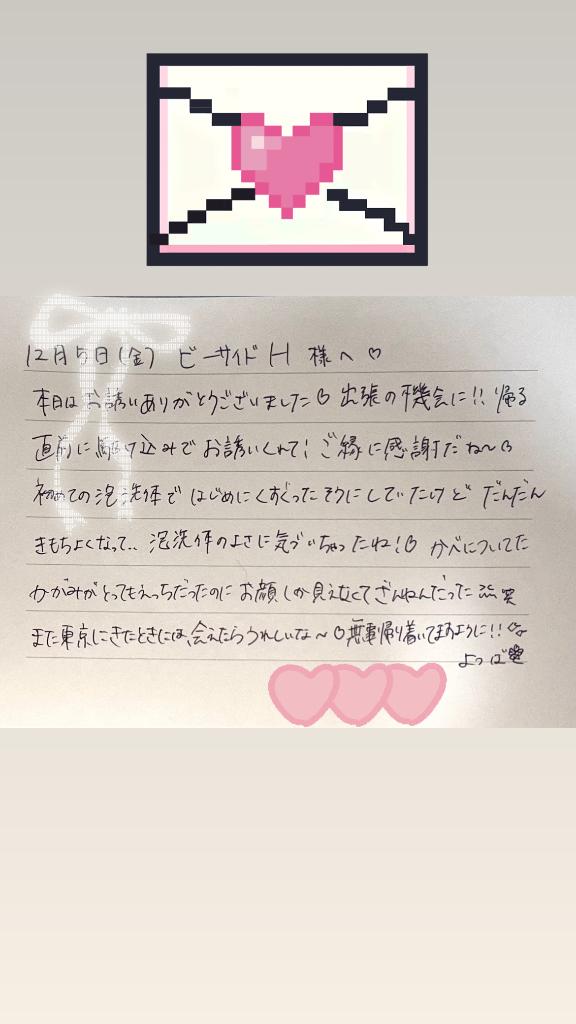 12月5日(金) ビーサイド H 様へ♡
本日はお誘いありがとうございました♡ 出張の機会に!! 帰る
直前に駆け込みでお誘いくれて! ご縁に感謝だね〜♡
初めての泡洗体ではじめにくすぐったそうにしていたけど だんだん
きもちよくなって.. 泡洗体のよさに気づいちゃったね!♡ かべについてた
かがみがとってもえっちだったのに お顔しか見えなくてざんねんだった 笑
また東京にきたときには、会えたらうれしいな〜♡無事帰り着いてますように!!
よつば